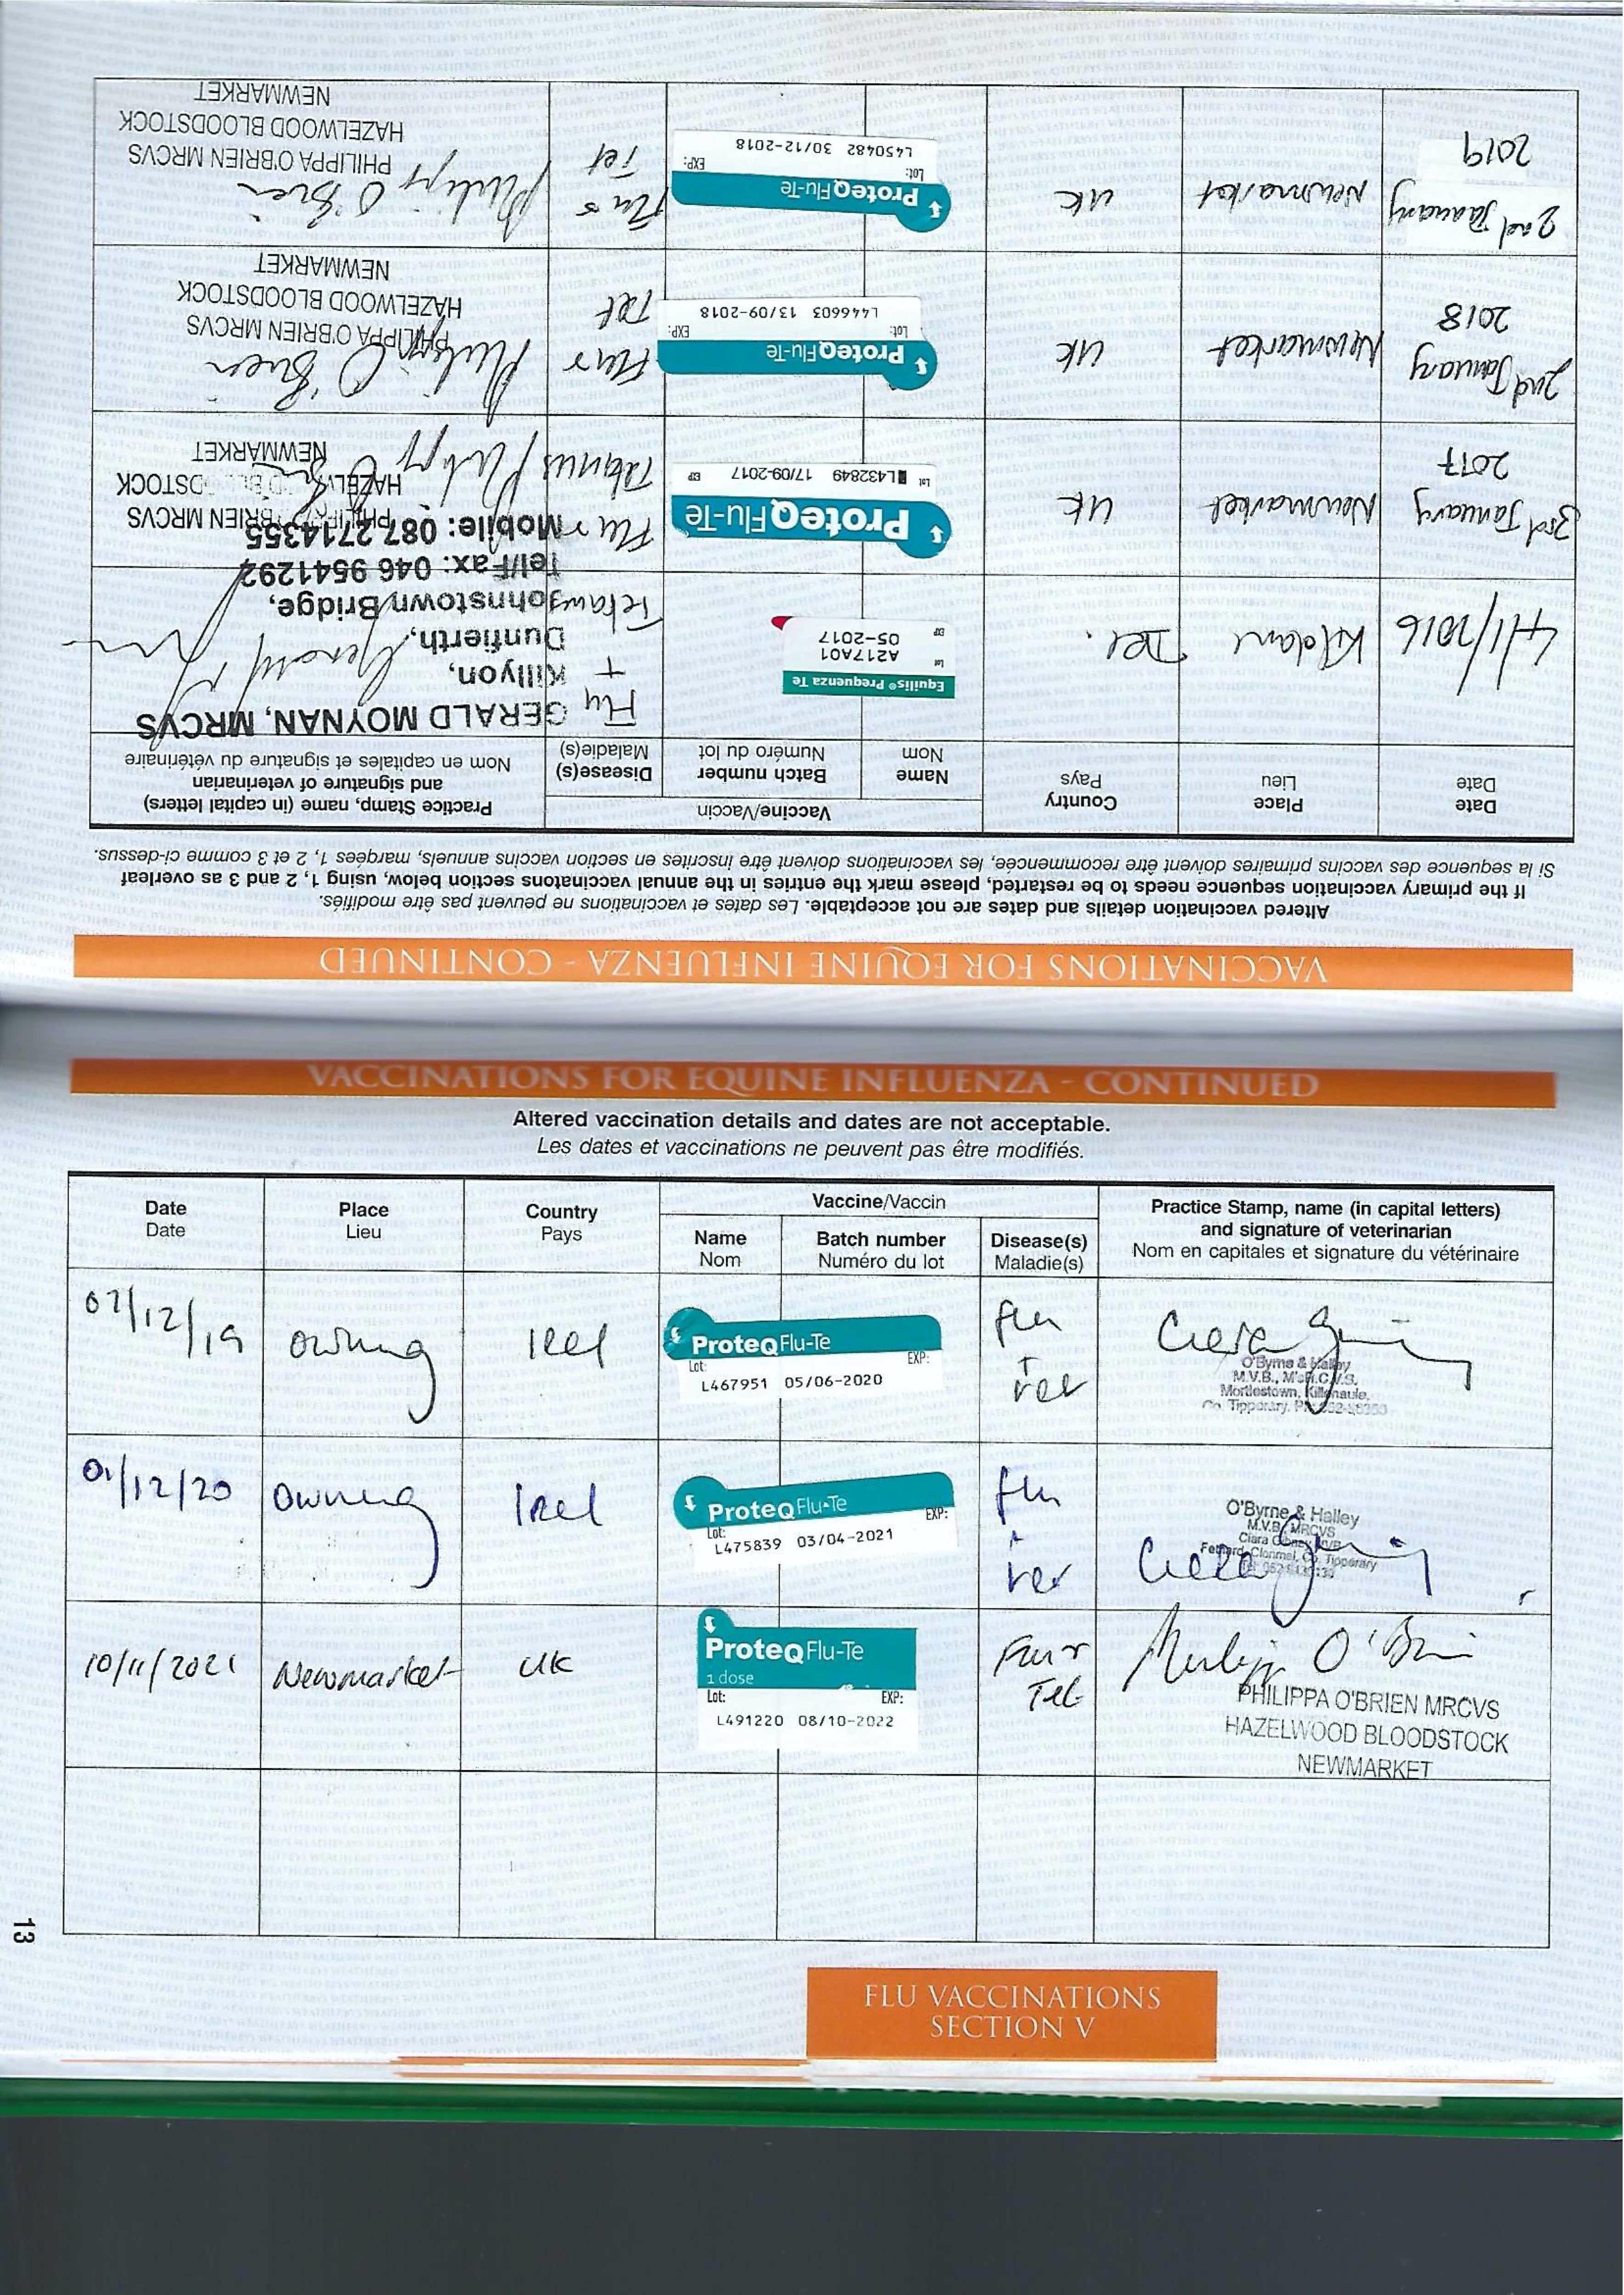 VACCINATIONS FOR EQUINE INFLUENZA - CONTINUED
Altered vaccination details and dates are not acceptable. Les dates et vaccinations ne peuvent pas être modifiés.
If the primary vaccination sequence needs to be restarted, please mark the entries in the annual vaccinatons section below, using 1, 2 and 3 as overleaf
Si la sequence des vaccins primaires doivent être recommencée, les vaccinations doivent être inscrites en section vaccins annuels, marqées 1, 2 et 3 comme ci-dessus.
Date
Date
Place
Lieu
Country
Pays
Vaccine/Vaccin
Name
Nom
Batch number
Numéro du lot
Disease(s)
Maladie(s)
Practice Stamp, name (in capital letters)
and signature of veterinarian
Nom en capitales et signature du vétérinaire
4/1/2016
Kildare
Irel.
Equilis® Prequenza Te
Lot A217A01
EXP 05-2017
Flu
+
Tetanus
GERALD MOYNAN, MRCVS
Killyon,
Dunfierth,
Johnstown Bridge,
Tel/Fax: 046 9541292
Mobile: 087 2714355
3rd January
2017
Newmarket
UK
ProteqFlu-Te
Lot L432849 17/09-2017 EXP
Flu +
Tetanus
PHILIPPA O'BRIEN MRCVS
NEWMARKET
2nd January
2018
Newmarket
UK
ProteqFlu-Te
Lot: EXP:
L446603 13/09-2018
Flu +
Tet
Philippa O'Brien
PHILIPPA O'BRIEN MRCVS
HAZELWOOD BLOODSTOCK
NEWMARKET
2nd January
2019
Newmarket
UK
ProteqFlu-Te
Lot: EXP:
L450482 30/12-2018
Flu +
Tet
Philippa O'Brien
PHILIPPA O'BRIEN MRCVS
HAZELWOOD BLOODSTOCK
NEWMARKET
VACCINATIONS FOR EQUINE INFLUENZA - CONTINUED
Altered vaccination details and dates are not acceptable.
Les dates et vaccinations ne peuvent pas être modifiés.
Date
Date
Place
Lieu
Country
Pays
Vaccine/Vaccin
Name
Nom
Batch number
Numéro du lot
Disease(s)
Maladie(s)
Practice Stamp, name (in capital letters)
and signature of veterinarian
Nom en capitales et signature du vétérinaire
/12/19
Owning
Irel
ProteqFlu-Te
Lot: EXP:
L467951 05/06-2020
flu
+
tet
O'Byrne & Halley
Co. Tipperary.
01/12/20
Owning
Irel
ProteqFlu-Te
Lot: EXP:
L475839 03/04-2021
flu
+
tet
O'Byrne & Halley
M.V.B. MRCVS
Fethard, Clonmel, Co. Tipperary
10/11/2021
Newmarket
UK
ProteqFlu-Te
1 dose
Lot: EXP:
L491220 08/10-2022
Flu +
Tet
Philippa O'Brien
PHILIPPA O'BRIEN MRCVS
HAZELWOOD BLOODSTOCK
NEWMARKET
13
FLU VACCINATIONS
SECTION V